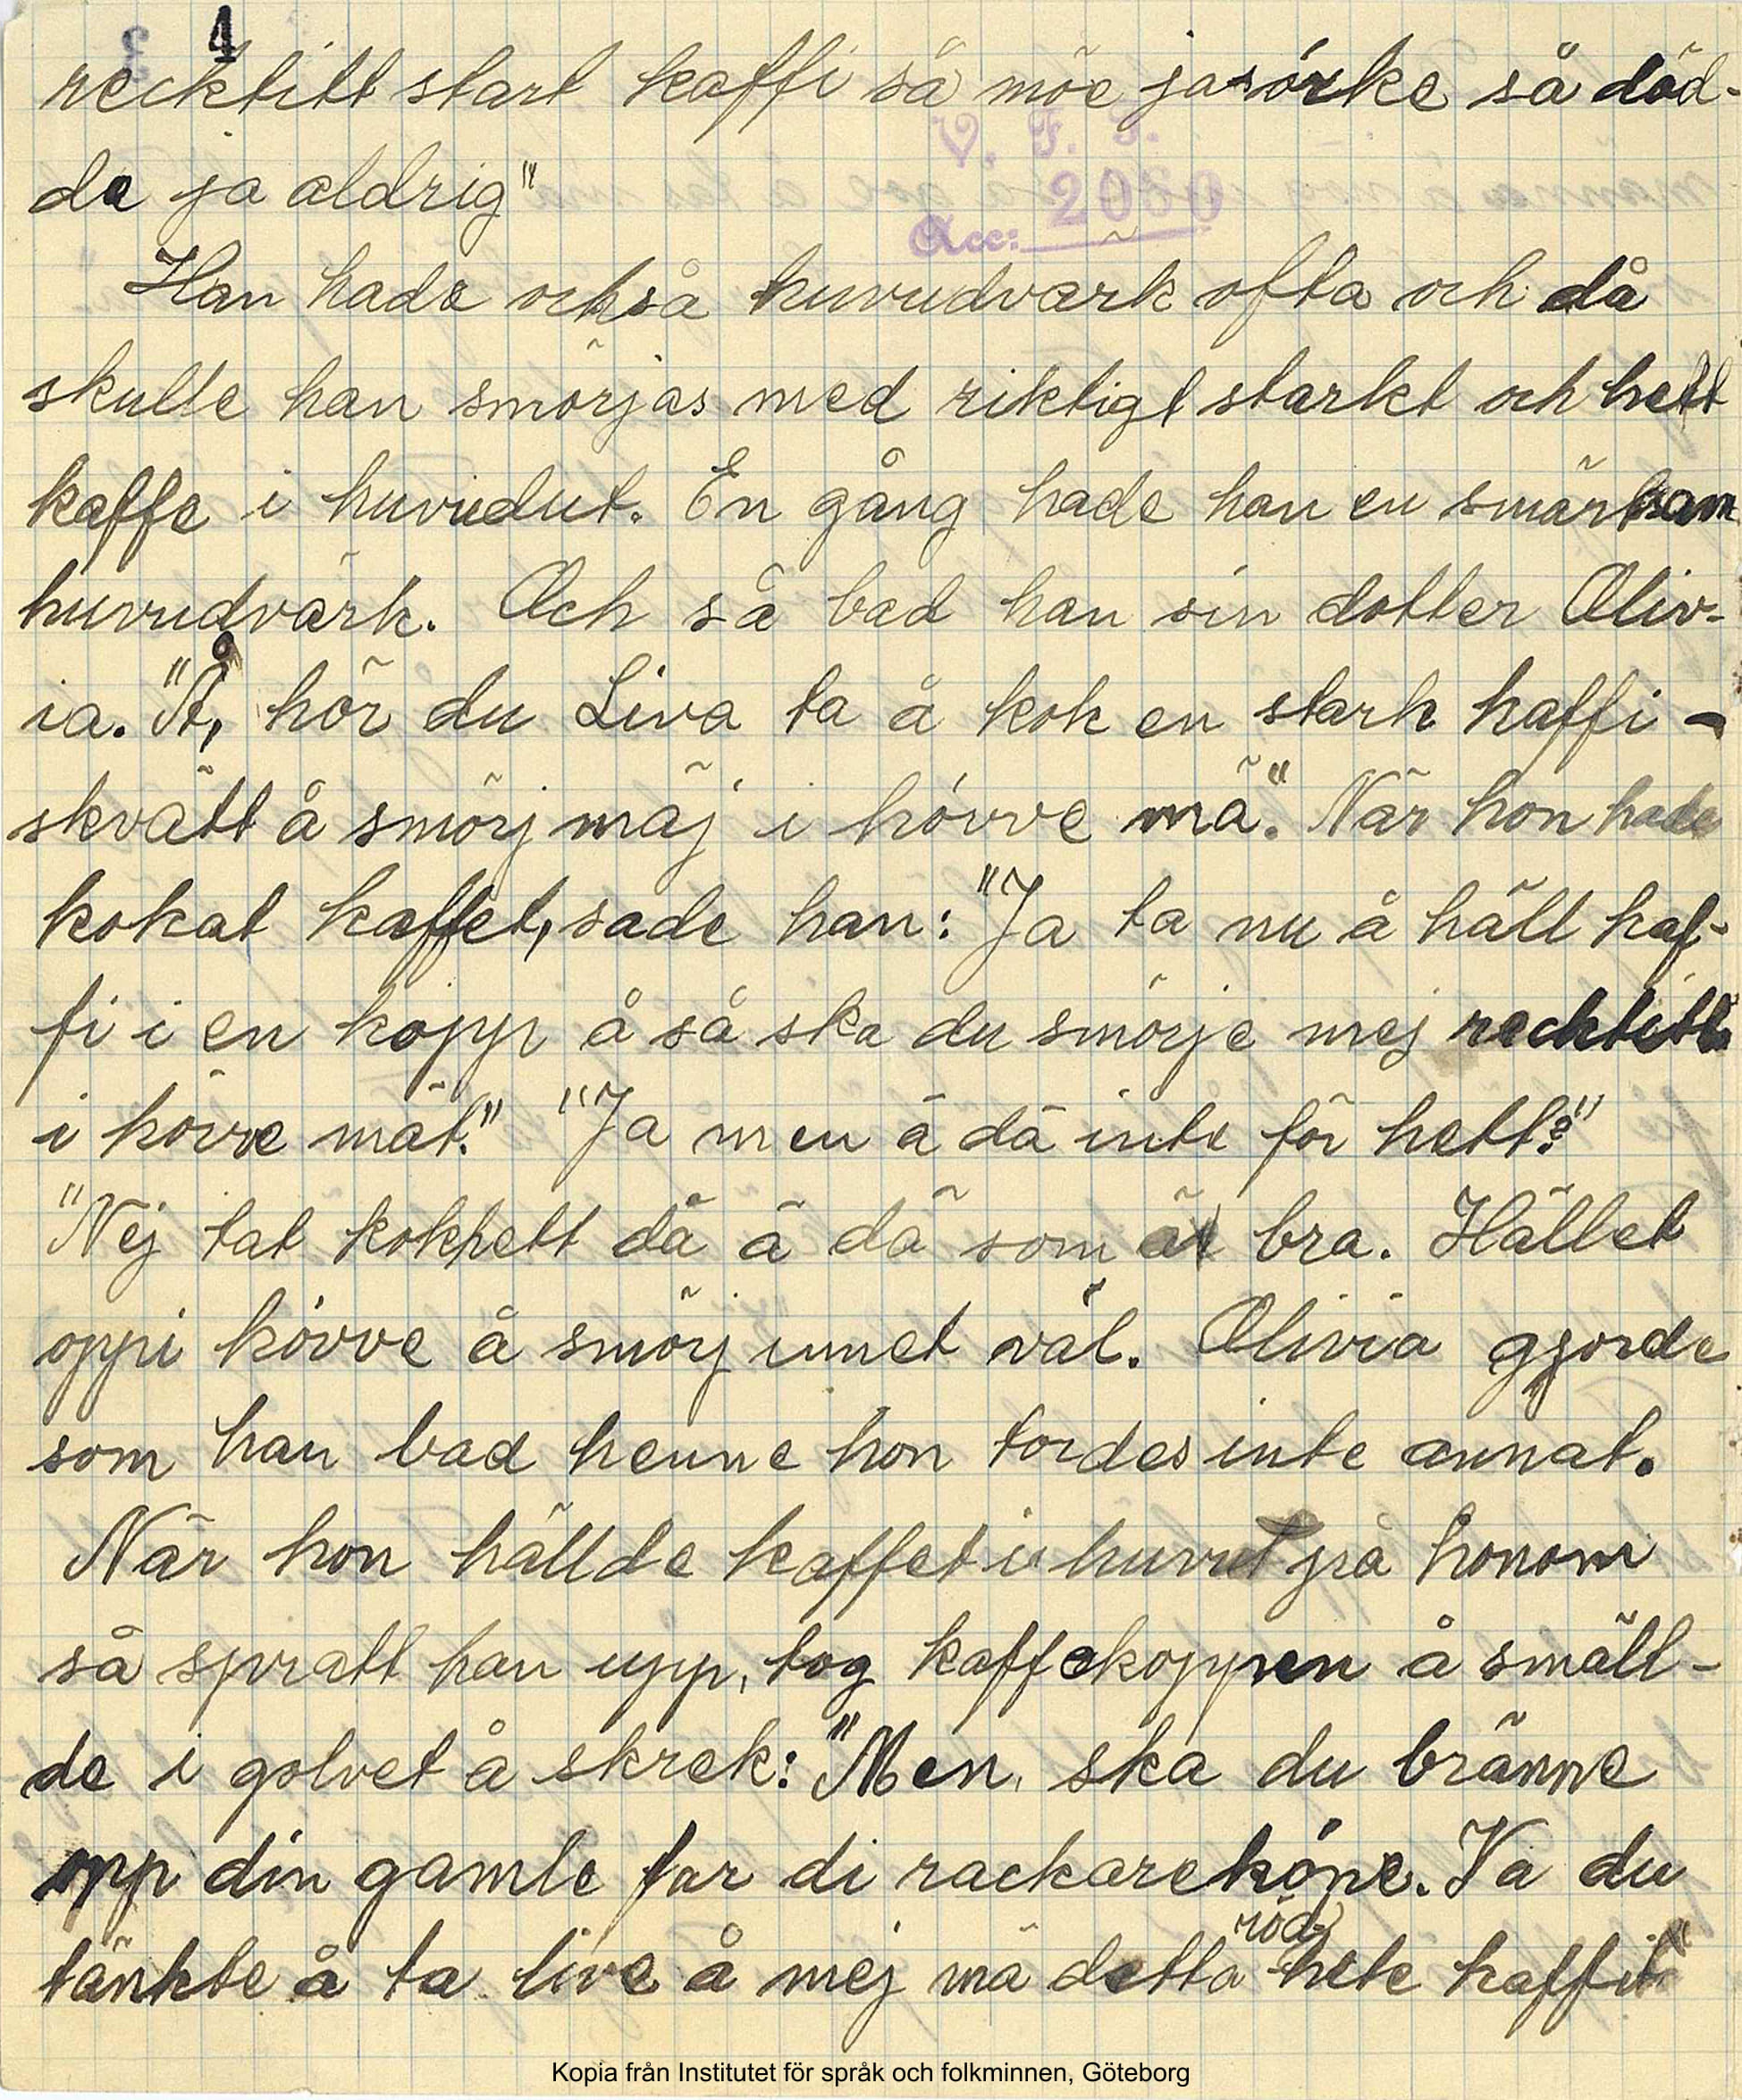 4
recktitt start kaffi så möe ja sórke så död-
de ja aldrig"
V. F. F.
Acc: 2050
Han hade också huvudvärk ofta och då
skulle han smörjas med riktigt starkt och hett
kaffe i huvudut. En gång hade han en smärtsam
huvudvärk. Och så bad han sin dotter Oliv-
ia. "Å, hör du Liva ta å kok en stark kaffi-
skvätt å smörj mäj i hóvve mä". När hon hade
kokat kaffet, sade han: "Ja ta nu å häll kaf-
fi i en kopp å så ska du smörje mej recktitt
i hóvve mät." "Ja men ä dä inte för hett?"
"Nej tat kokhett dä ä dä som ä bra. Hället
oppi hóvve å smörj unnet väl. Olivia gjorde
som han bad henne hon tordes inte annat.
När hon hällde kaffet i huvut på honom
så spratt han upp, tog kaffekoppen å smäll-
de i golvet å skrek: "Men, ska du bränne
opp din gamle far di rackarekóne. Va du
tänkte å ta live å mej mä detta röd hete kaffit"
Kopia från Institutet för språk och folkminnen, Göteborg